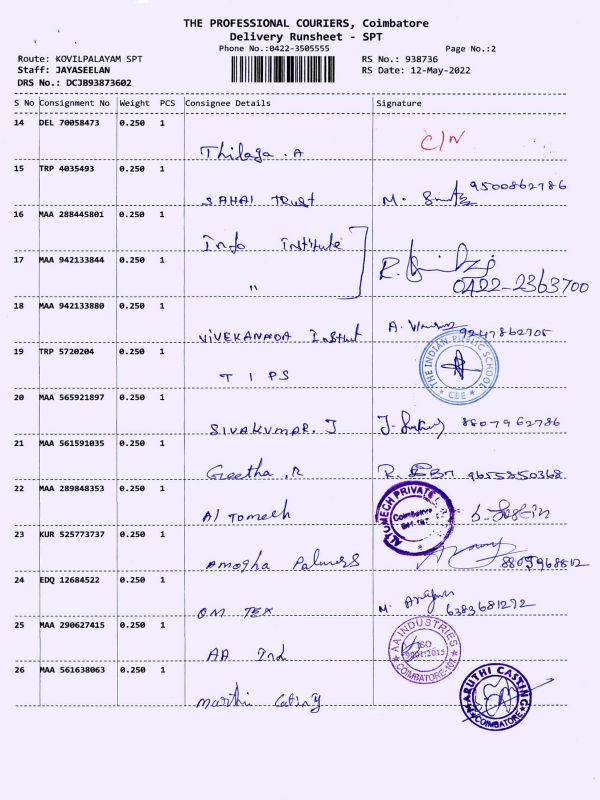 THE PROFESSIONAL COURIERS, Coimbatore
Delivery Runsheet - SPT
Phone No.:0422-3505555 Page No.:2
Route: KOVILPALAYAM SPT RS No.: 938736
Staff: JAYASEELAN RS Date: 12-May-2022
DRS No.: DCJB93873602
S No Consignment No Weight PCS Consignee Details Signature
14 DEL 70058473 0.250 1
Thilaga . A C/N
15 TRP 4035493 0.250 1
SAHAI TRUST M. 9500862786
16 MAA 288445801 0.250 1
Info Institute
17 MAA 942133844 0.250 1
" R. 0422-2363700
18 MAA 942133880 0.250 1
VIVEKANADA A. 9247862705
19 TRP 5720204 0.250 1
T I P S THE INDIAN PUBLIC SCHOOL CBE
20 MAA 565921897 0.250 1
SIVAKUMAR. J J. 8807962786
21 MAA 561591035 0.250 1
Geetha .R R. 9655850368
22 MAA 289848353 0.250 1
Altomech ALTOMECH PRIVATE Coimbatore
23 KUR 525773737 0.250 1
Amogha Palmers
24 EDQ 12684522 0.250 1
OM TEX M. 6383681272
25 MAA 290627415 0.250 1
AA Ind AA INDUSTRIES ISO 9001:2015 COIMBATORE-107
26 MAA 561638063 0.250 1
Marthi MARUTHI CASTING COIMBATORE